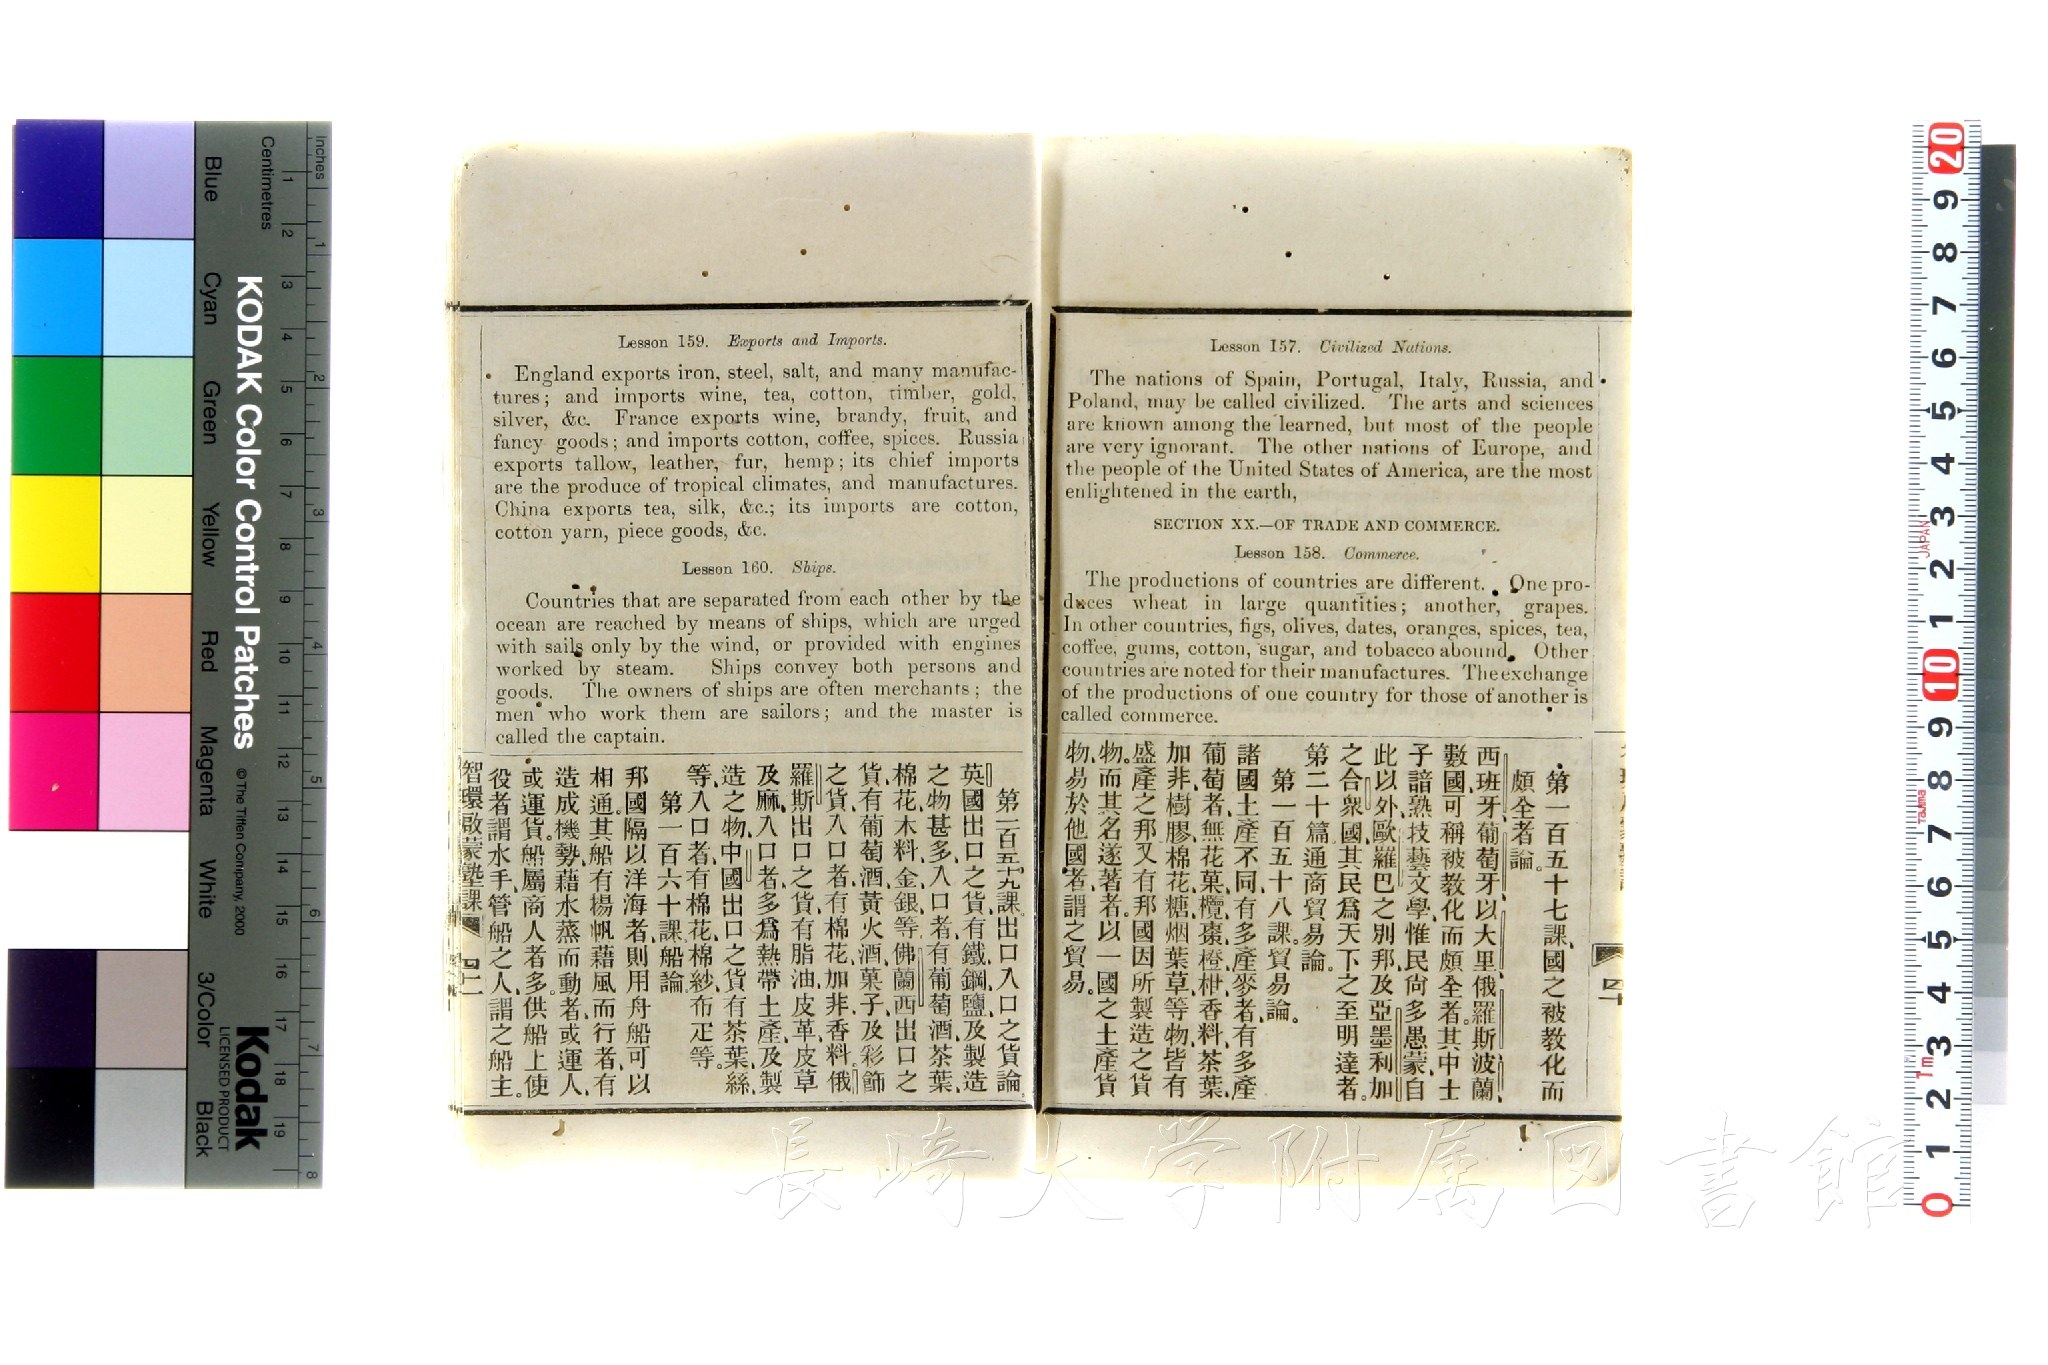 Lesson 157. Civilized Nations.
The nations of Spain, Portugal, Italy, Russia, and
Poland, may be called civilized. The arts and sciences
are known among the learned, but most of the people
are very ignorant. The other nations of Europe, and
the people of the United States of America, are the most
enlightened in the earth,
SECTION XX.—OF TRADE AND COMMERCE.
Lesson 158. Commerce.
The productions of countries are different. One pro-
duces wheat in large quantities; another, grapes.
In other countries, figs, olives, dates, oranges, spices, tea,
coffee, gums, cotton, sugar, and tobacco abound. Other
countries are noted for their manufactures. The exchange
of the productions of one country for those of another is
called commerce.
第一百五十七課、國之被教化而
頗全者論。
西班牙、葡萄牙、以大里、俄羅斯、波蘭、
數國、可稱被教化而頗全者。其中士
子諳熟技藝文學、惟民尙多愚蒙、自
此以外、歐羅巴之別邦、及亞墨利加
之合衆國、其民爲天下之至明達者。
第二十篇通商貿易論。
第一百五十八課。貿易論。
諸國土產不同、有多產麥者、有多產
葡萄者、無花菓、欖、棗、橙、柑、香料、茶葉、
加非、樹膠、棉花、糖、烟葉草、等物、皆有
盛產之邦、又有邦國因所製造之貨
物、而其名遂著者、以一國之土產貨
物、易於他國者、謂之貿易。
四十
Lesson 159. Exports and Imports.
England exports iron, steel, salt, and many manufac-
tures; and imports wine, tea, cotton, timber, gold,
silver, &c. France exports wine, brandy, fruit, and
fancy goods; and imports cotton, coffee, spices. Russia
exports tallow, leather, fur, hemp; its chief imports
are the produce of tropical climates, and manufactures.
China exports tea, silk, &c.; its imports are cotton,
cotton yarn, piece goods, &c.
Lesson 160. Ships.
Countries that are separated from each other by the
ocean are reached by means of ships, which are urged
with sails only by the wind, or provided with engines
worked by steam. Ships convey both persons and
goods. The owners of ships are often merchants; the
men who work them are sailors; and the master is
called the captain.
第一百五十九課出口入口之貨論。
英國出口之貨、有鐵、鋼、鹽、及製造
之物甚多、入口者、有葡萄酒、茶葉、
棉花、木料、金、銀、等、佛蘭西出口之
貨、有葡萄酒、黃火酒、菓子、及彩飾
之貨、入口者、有棉花、加非、香料、俄
羅斯出口之貨、有脂油、皮革、皮草
及麻、入口者、多爲熱帶土產、及製
造之物、中國出口之貨、有茶葉、絲、
等、入口者、有棉花、棉紗、布疋等。
第一百六十課船論
邦國隔以洋海者、則用舟船可以
相通。其船有楊帆藉風而行者、有
造成機勢、藉水蒸而動者、或運人、
或運貨。船屬商人者多。供船上使
役者、謂水手、管船之人、謂之船主。
智環啟蒙塾課
四十一
KODAK Color Control Patches
© The Tiffen Company, 2000
Kodak
LICENSED PRODUCT
Inches
Centimetres
Blue
Cyan
Green
Yellow
Red
Magenta
White
3/Color
Black
1 2 3 4 5 6 7 8 9 10 11 12 13 14 15 16 17 18 19
1 2 3 4 5 6 7 8
20 9 8 7 6 5 4 3 2 1 10 9 8 7 6 5 4 3 2 1 0
JAPAN
Tajima
1m
長崎大学附属図書館